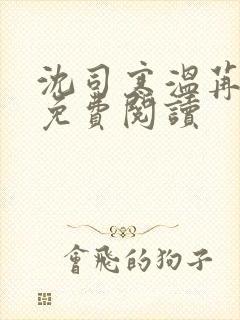 沈司寒溫苒
免費閱讀
會飛的狗子